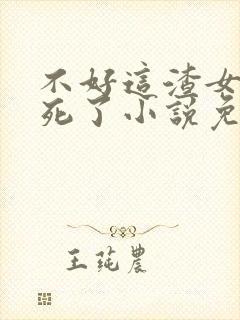 不好這渣女
死了小説免
王莼農